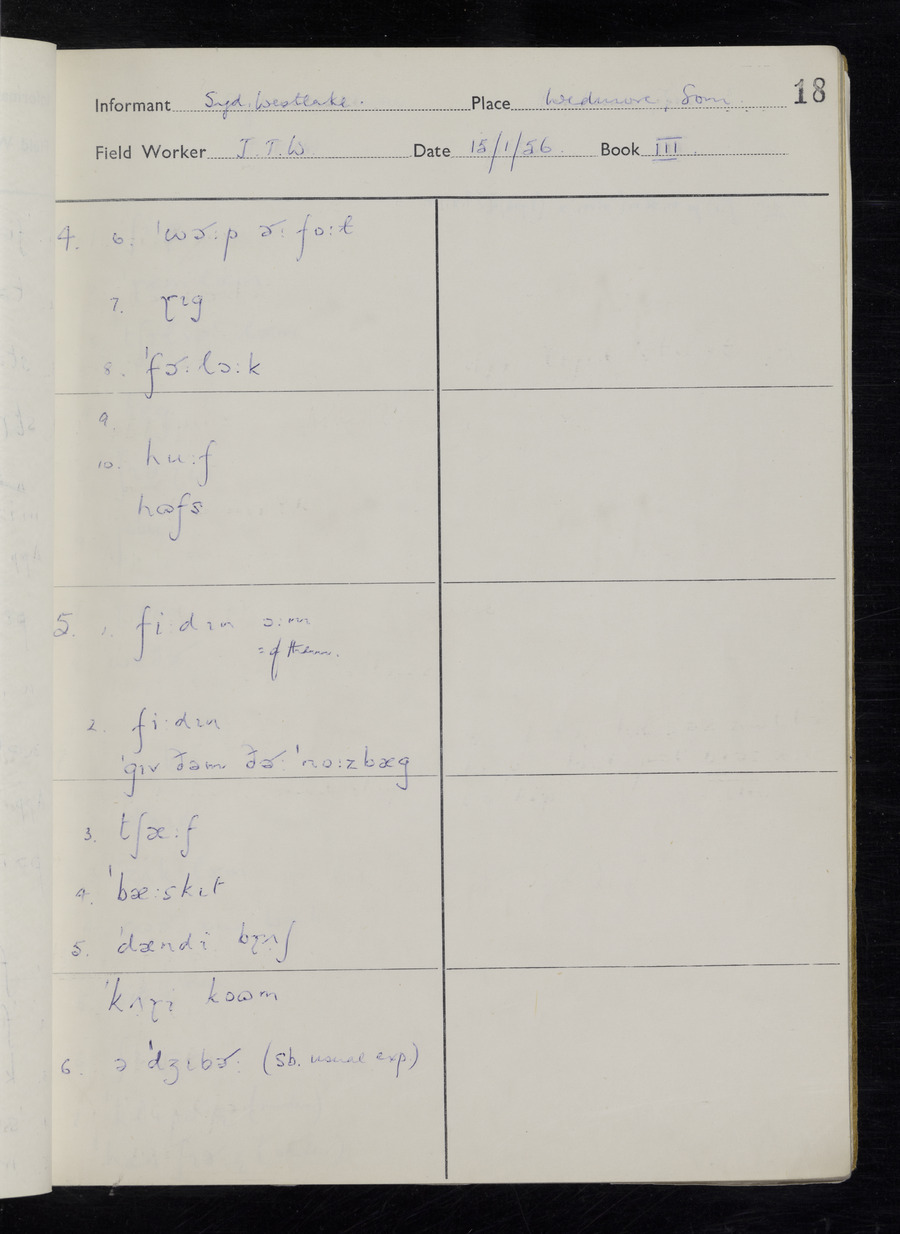 18
Informant Syd. Westlake. Place Wedmore, Som.
Field Worker J.T.W. Date 15/1/56. Book III
4. 6. ˈwɚːp ɚː fɔːt
7. ɽɪg
8. ˈfɚːlɔːk
9.
10. huːf
hɷfs
5. 1. fiːdɪn ɔːm
= of them.
2. fiːdɪn
ˈgɪv ðəm ðɚː ˈnɔːzbæg
3. tʃæːf
4. ˈbæːskɪt
5. ˈdændi bɽɪʃ
ˈkʌɽi koɷm
6. ə ˈdʒɪbɚː (sb. usual exp)